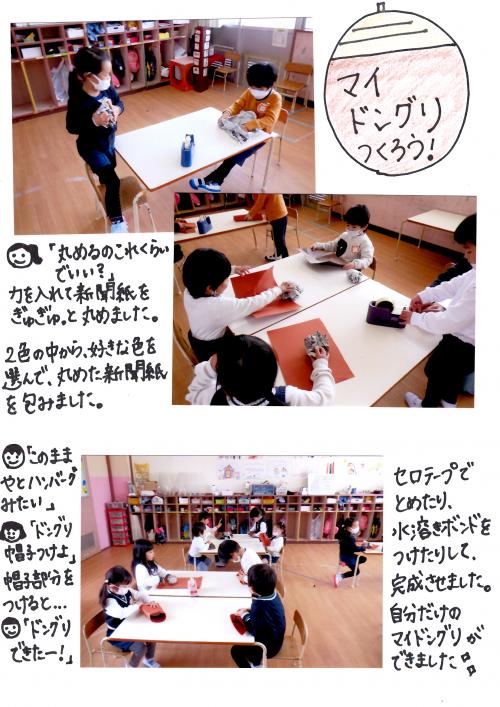 マイ
ドングリ
つくろう!
「丸めるのこれくらい
でいい?」
力を入れて新聞紙を
ぎゅぎゅっと丸めました。
2色の中から、好きな色を
選んで、丸めた新聞紙
を包みました。
「このまま
やとハンバーグ
みたい。」
「ドングリ
帽子つけよ」
帽子部分を
つけると…
「ドングリ
できたー!」
セロテープで
とめたり、
水溶きボンドを
つけたりして、
完成させました。
自分だけの
マイドングリが
できました!!